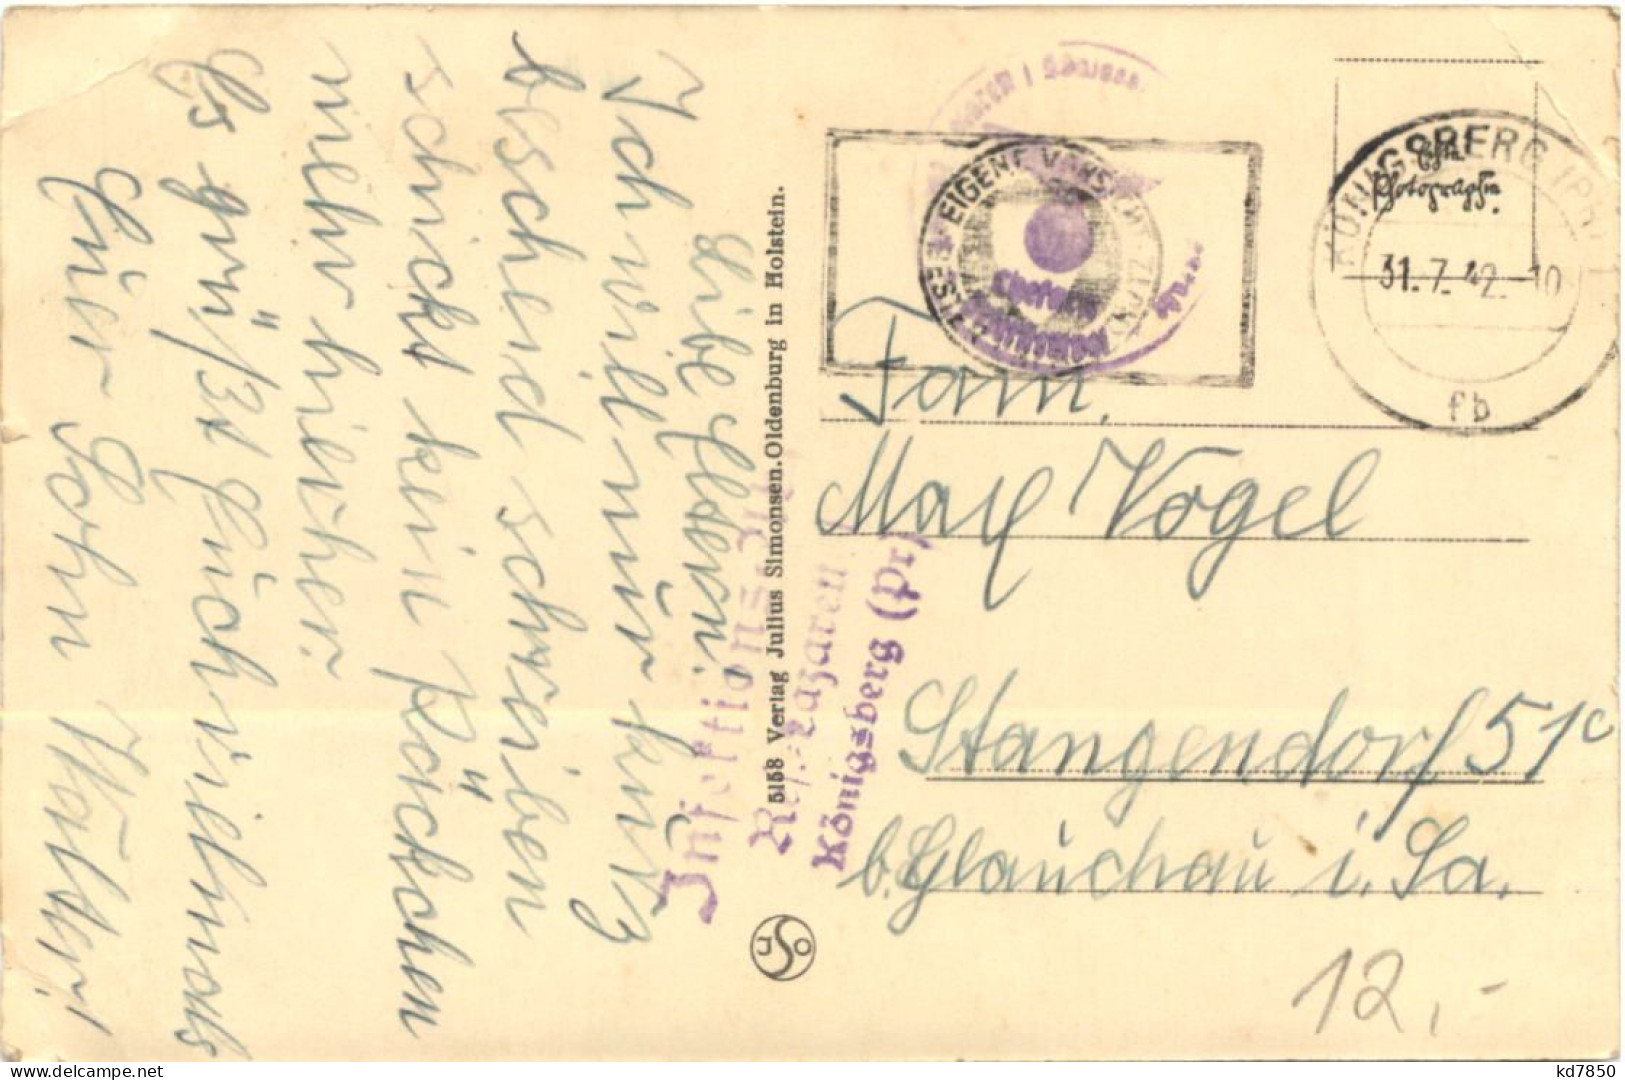 Libe Eltern.
Ich will nur kurz
bescheid schreiben
schickt kein Päckchen
mehr hierher.
Es grüßt Euch vielmals
Euer Sohn Walter!
5158 Verlag Julius Simonsen. Oldenburg in Holstein.
JSO
Res.-Lazarett
Königsberg (Pr)
EIGENE
KÖNIGSBERG (PR)
31.7.42.-10
fb
Echte
Photographie
Fam.
Max Vogel
Stangendorf 51c
b. Glauchau i. Sa.
12,-
kd7850